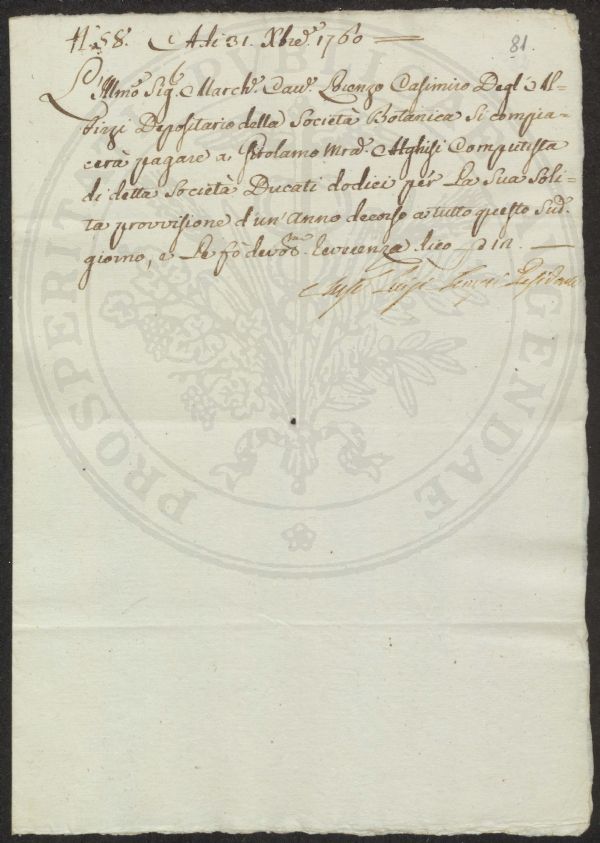 N.° 58. Adi 31. Xbre. 1760
81.
L'Illmo Sig.r March.e Cav.e Lorenzo Casimiro Degl'Al-
bizzi Depositario della Società Botanica Si compia-
cerà pagare a Girolamo Ma. Alghisi Computista
di detta Società Ducati dodici per La Sua Soli-
ta provvisione d'un'Anno decorso a tutto questo Sud.o
giorno, e Le fò devotma. reverenza. dico 12.
Luigi
PROSPERITATI PUBLICAE AUGENDAE